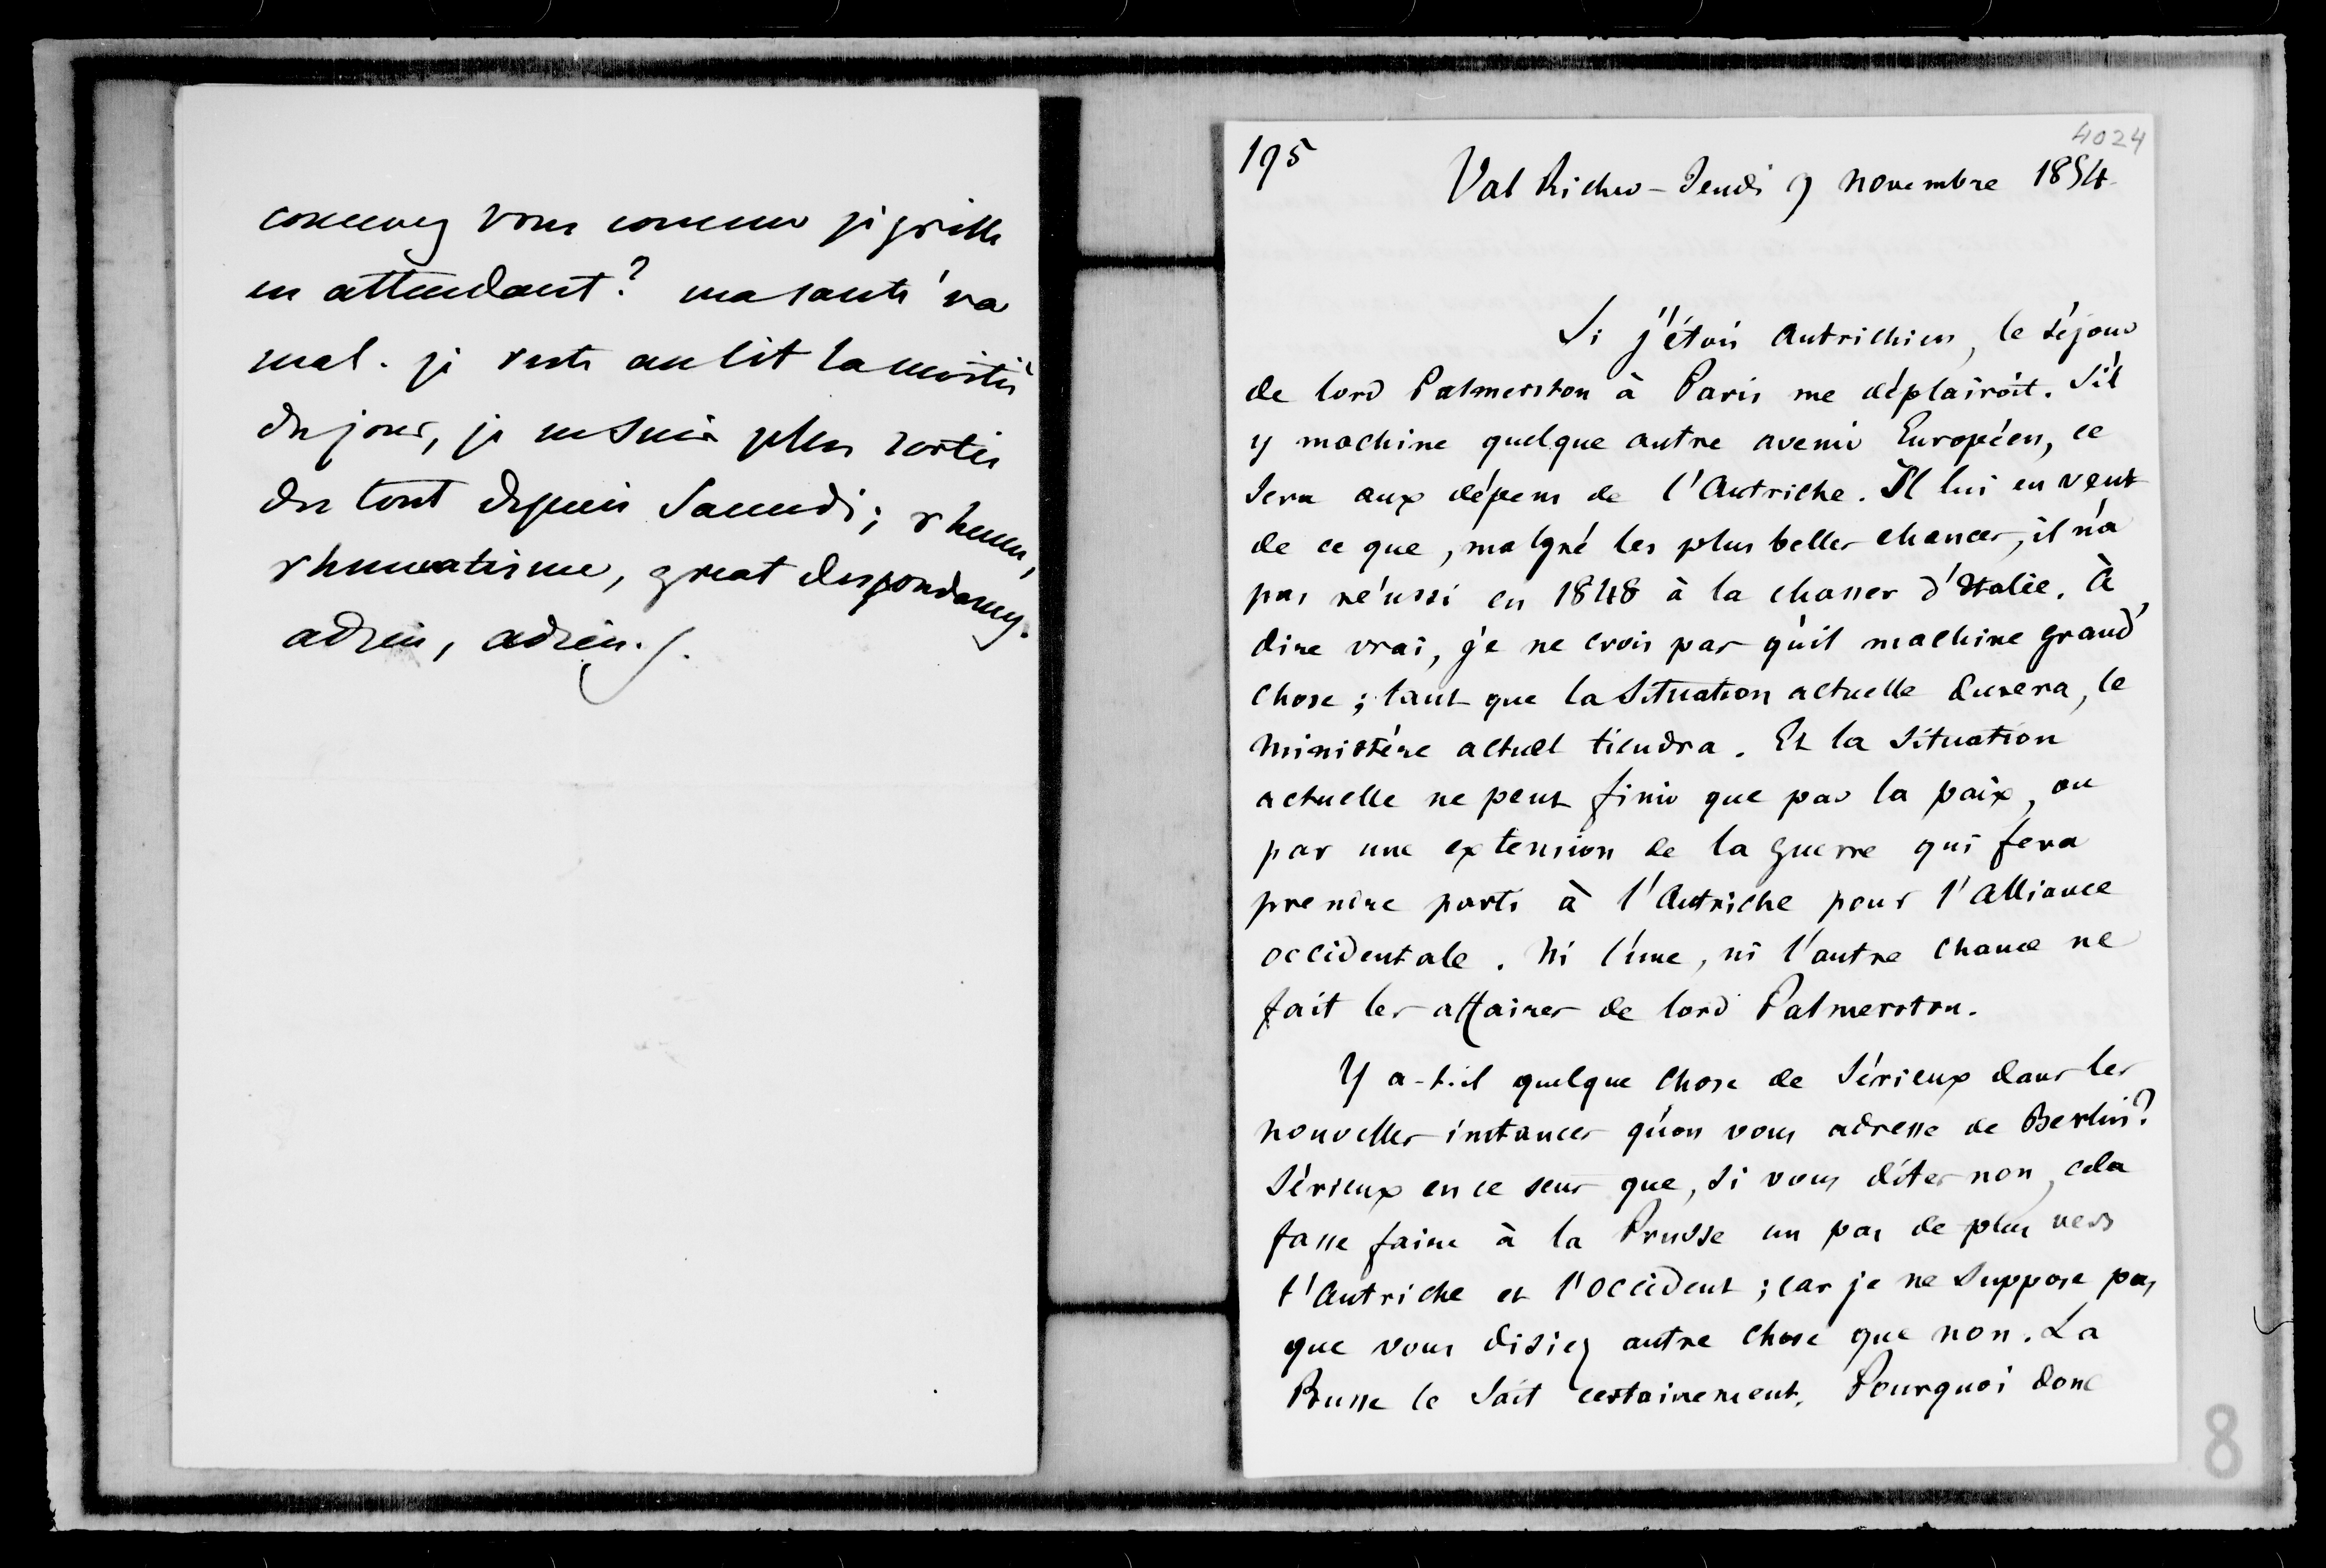 concevez vous comme je grille
en attendant? ma santé va
mal. je reste au lit la moitié
du jour, je ne suis plus sortie
du tout depuis Samedi; rhume,
rhumatisme, great despondency.
adieu, adieu.
195
4024
Val Richer - Jeudi 9 novembre 1854
Si j'étois Autrichien, le séjour
de lord Palmerston à Paris me déplairoit. S'il
y machine quelque autre avenir Européen, ce
sera aux dépens de l'Autriche. Il lui en veut
de ce que, malgré les plus belles chances, il n'a
pas réussi en 1848 à la chasser d'Italie. à
dire vrai, je ne crois pas qu'il machine grand'
chose; tant que la situation actuelle durera, le
ministère actuel tiendra. Et la situation
actuelle ne peut finir que par la paix, ou
par une extension de la guerre qui fera
prendre parti à l'Autriche pour l'alliance
occidentale. Ni l'une, ni l'autre chance ne
fait les affaires de lord Palmerston.
Y a-t-il quelque chose de sérieux dans les
nouvelles instances qu'on vous adresse de Berlin?
Sérieux en ce sens que, si vous dites non, cela
fasse faire à la Prusse un pas de plus vers
l'Autriche et l'occident; car je ne suppose pas
que vous disiez autre chose que non. La
Prusse le sait certainement. Pourquoi donc
8